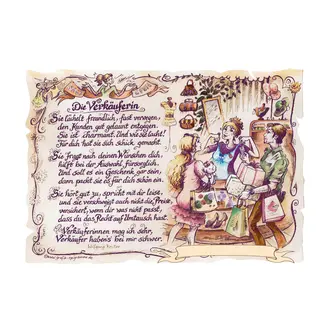 Die Verkäuferin
Sie lächelt freundlich, fast verwegen,
den Kunden gut gelaunt entgegen.
Sie ist charmant. Und wie sie lacht!
Für dich hat sie sich schick gemacht.
Sie fragt nach deinen Wünschen dich,
hilft bei der Auswahl, fürsorglich.
Und soll es ein Geschenk gar sein,
dann packt sie es für dich schön ein.
Sie hört gut zu, spricht mit dir leist,
und sie verschweigt auch nicht die Preise,
versichert, wenn dir was nicht passt,
dass du das Recht auf Umtausch hast.
Verkäuferinnen mag ich sehr,
Verkäufer haben's bei mir schwer.
Wolfgang